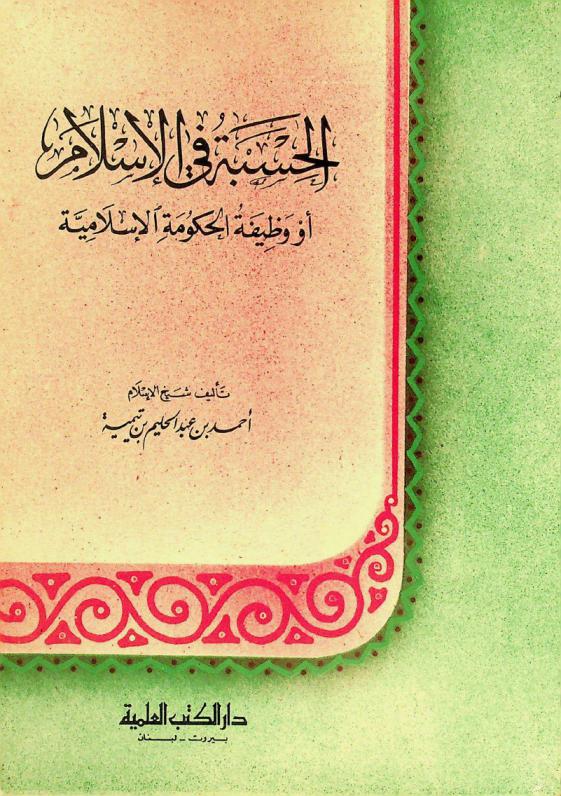 الحِسْبَةُ في الإِسْلَامِ
أو وَظيفَةُ الحكُومَةِ الإِسْلَامِيَّة
تأليف شيخ الإسلام
أحمد بن عبد الحليم بن تيمية
دار الكتب العلمية
بيروت - لبنان